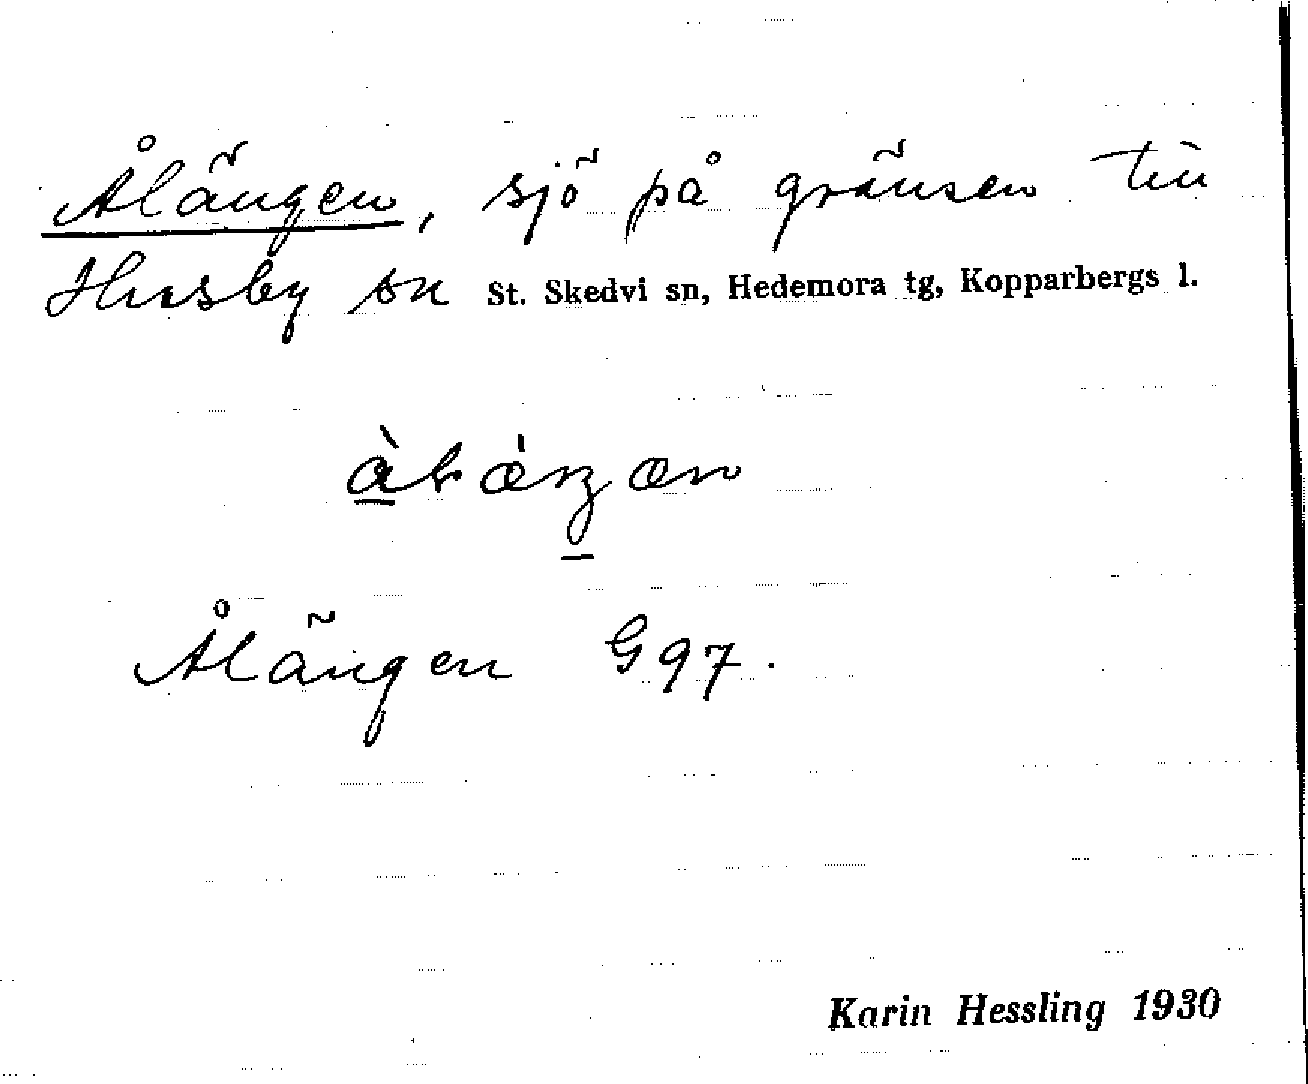 Ålängen, sjö på gränsen till
Husby sn St. Skedvi sn, Hedemora tg, Kopparbergs l.
Ålängen G 97.
Karin Hessling 1930